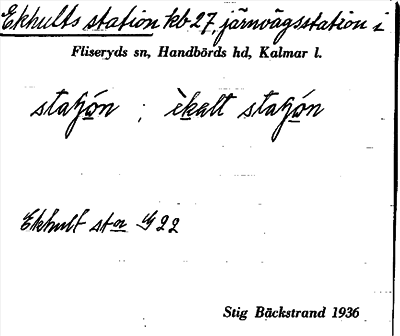 Ekhults station kb 27 järnvägsstation i
Fliseryds sn, Handbörds hd, Kalmar l.
staƕón ; èkalt staƕón
Ekhult sta G 22
Stig Bäckstrand 1936